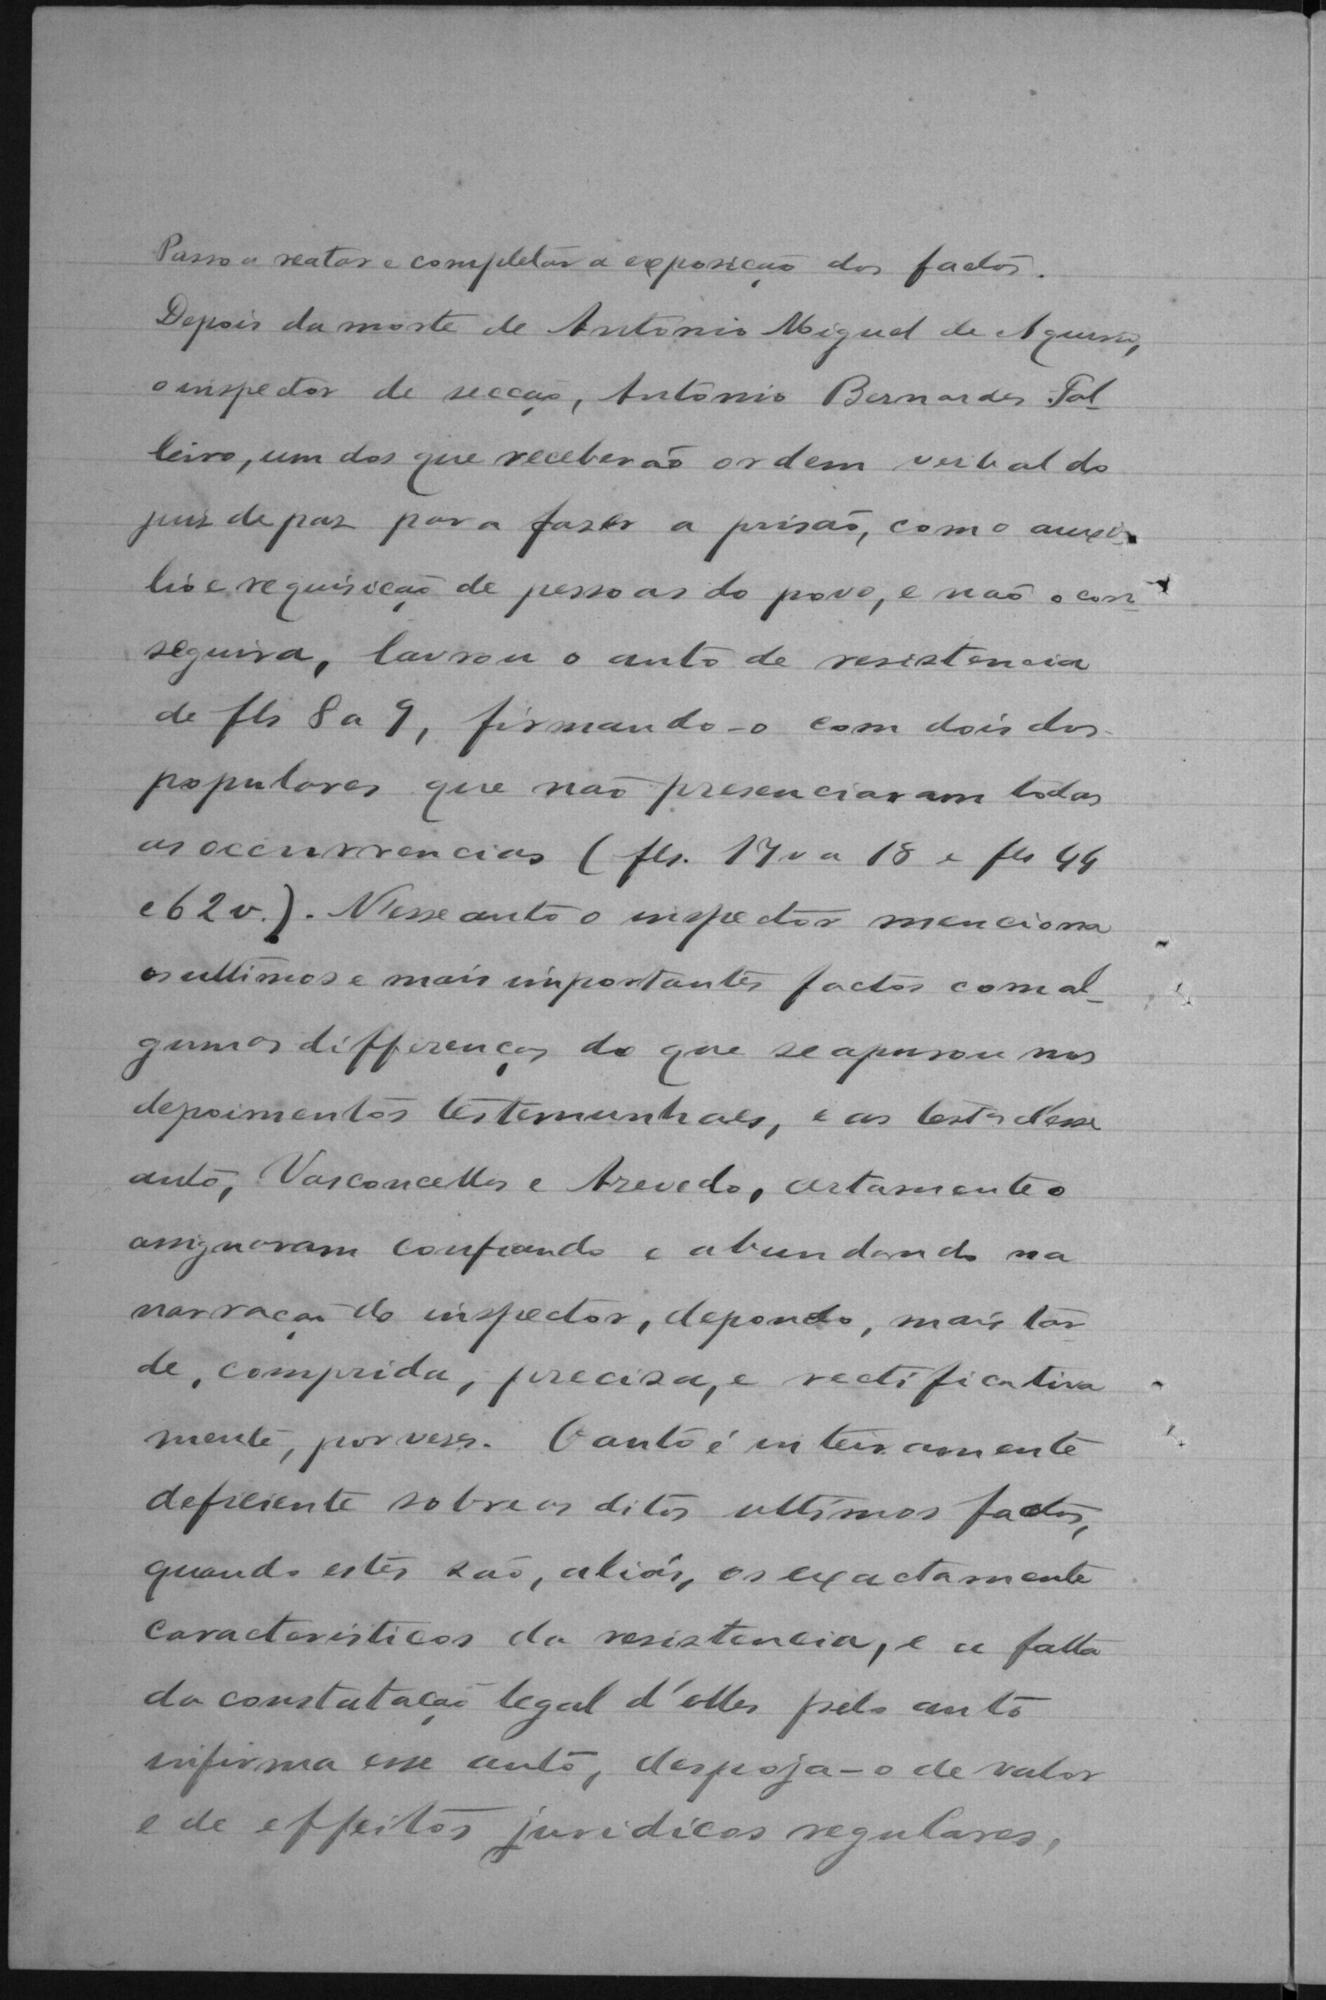 Passo a reatar e completar a exposição dos factos.
Depois da morte de Antonio Miguel de Aquino,
o inspector de secção, Antonio Bernardes Fal-
leiro, um dos que receberão ordem verbal do
juiz de paz para fazer a prisão, com o auxi-
lio e requisição de pessoas do povo, e não o con-
seguira, lavrou o auto de resistencia
de fls 8 a 9, firmando-o com dois dos
populares que não presenciaram todas
as occurrencias (fls. 17 v a 18 e fls 44
e 62 v.). Nesse auto o inspector menciona
os ultimos e mais importantes factos com al-
gumas differenças do que se apurou nos
depoimentos testemunhaes, e as testas desse
auto, Vasconcellos e Azevedo, certamente o
assignaram confiando e abundando na
narração do inspector, depondo, mais tar-
de, comprida, precisa, e rectificativa
mente, por vezes. O auto é inteiramente
deficiente sobre os ditos ultimos factos,
quando estes são, aliás, os exactamente
caracteristicos da resistencia, e a falta
da constatação legal d'elles pelo auto
infirma esse auto, despoja-o de valor
e de effeitos juridicos regulares,